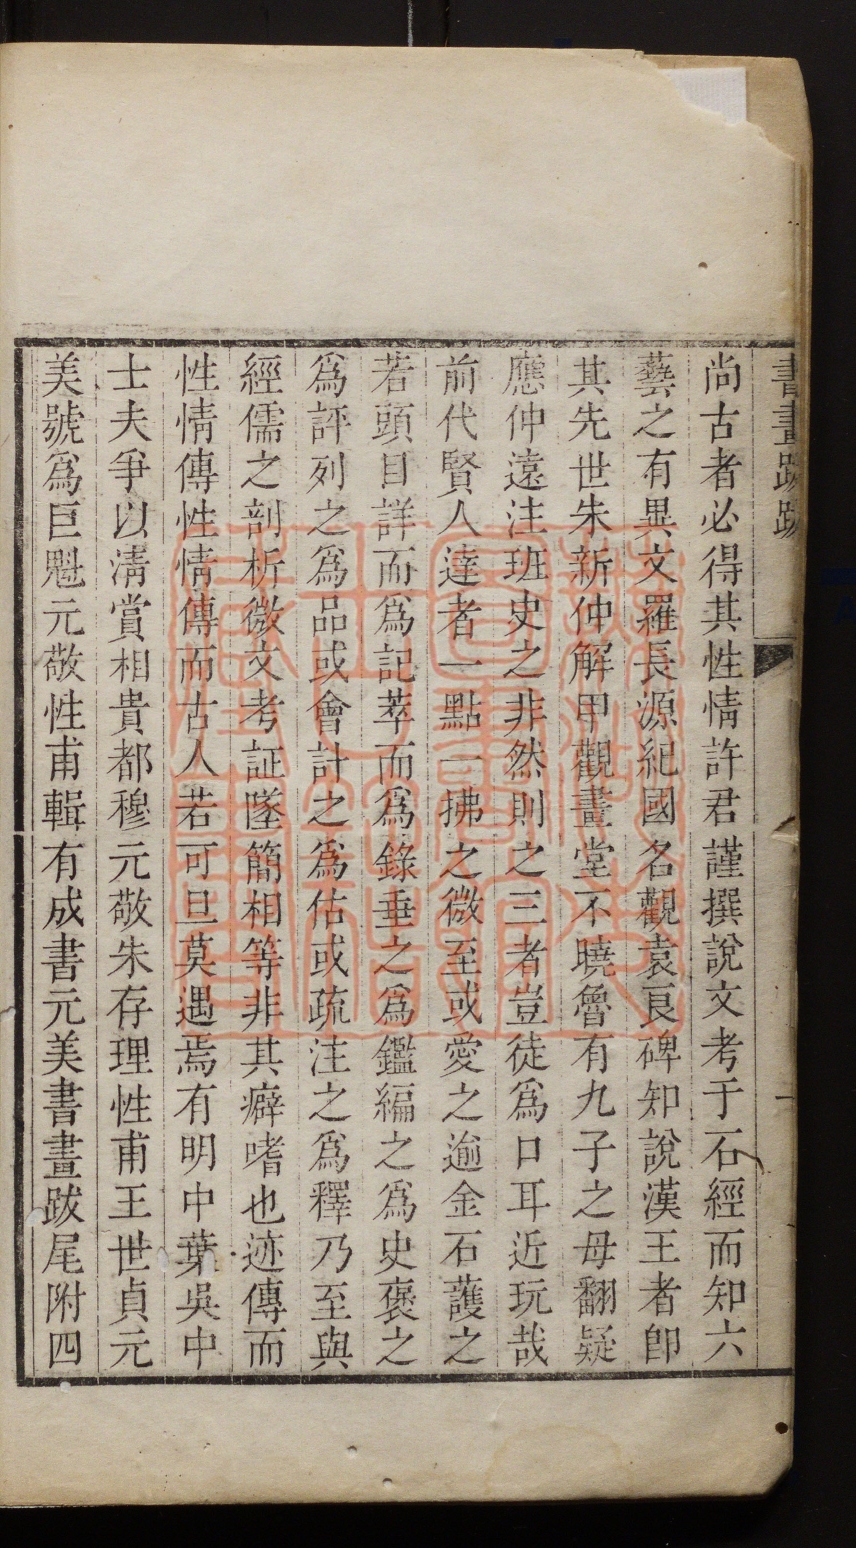 書畫跋跋
尚古者必得其性情許君謹撰說文考于石經而知六
藝之有異文羅長源紀國名觀袁良碑知說漢王者卽
其先世朱新仲解甲觀畫堂不曉魯有九子之母翻疑
應仲遠注班史之非然則之三者豈徒爲口耳近玩哉
前代賢人達者一點一拂之微至或愛之逾金石護之
若頭目詳而爲記萃而爲錄垂之爲鑑編之爲史褒之
爲評列之爲品或會計之爲估或疏注之爲釋乃至與
經儒之剖析微文考証墜簡相等非其癖嗜也迹傳而
性情傳性情傳而古人若可旦莫遇焉有明中葉吳中
士夫爭以清賞相貴都穆元敬朱存理性甫王世貞元
美號爲巨魁元敬性甫輯有成書元美書畫跋尾附四